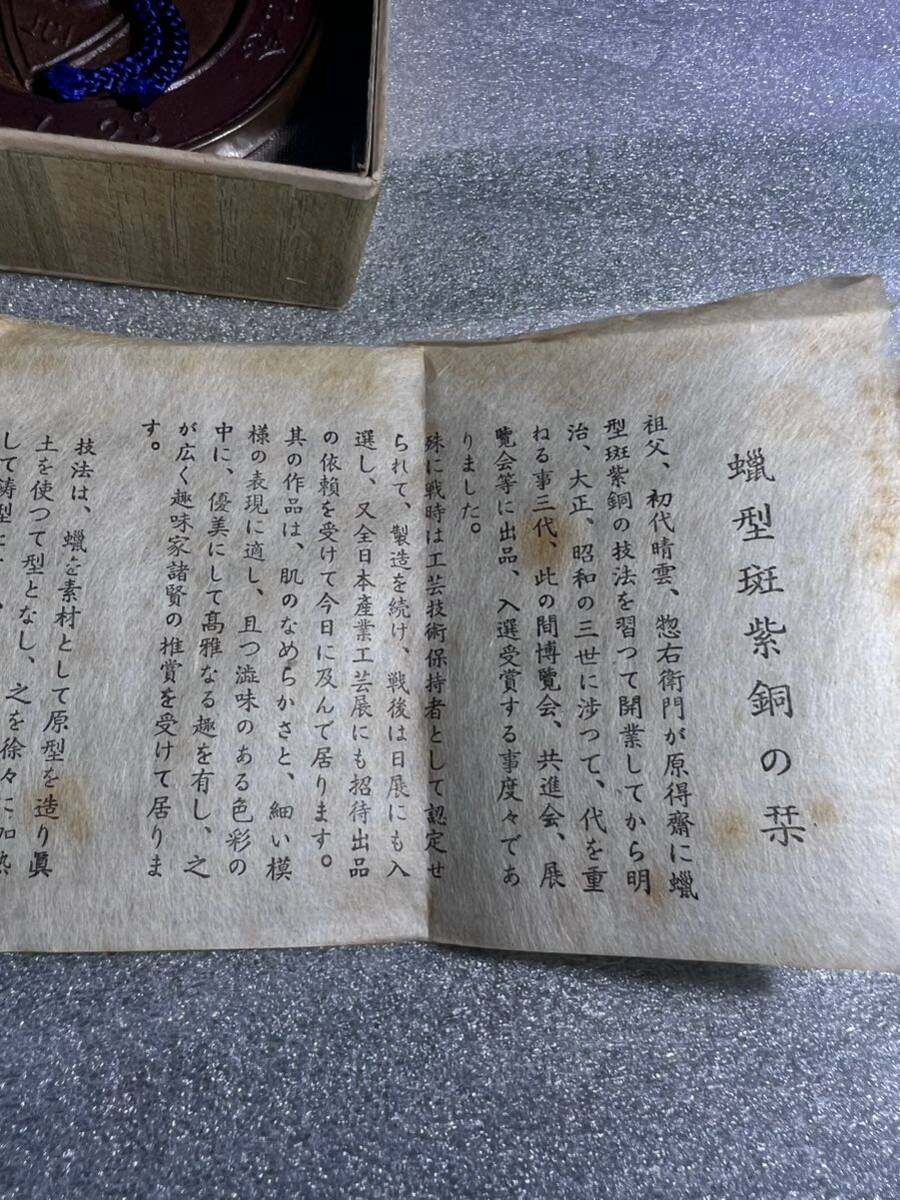 蠟型斑紫銅の栞
祖父、初代晴雲、惣右衛門が原得齋に蠟
型斑紫銅の技法を習つて開業してから明
治、大正、昭和の三世に渉つて、代を重
ねる事三代、此の間博覧会、共進会、展
覧会等に出品、入選受賞する事度々であ
りました。
殊に戦時は工芸技術保持者として認定せ
られて、製造を続け、戦後は日展にも入
選し、又全日本産業工芸展にも招待出品
の依頼を受けて今日に及んで居ります。
其の作品は、肌のなめらかさと、細い模
様の表現に適し、且つ澁味のある色彩の
中に、優美にして髙雅なる趣を有し、之
が広く趣味家諸賢の推賞を受けて居りま
す。
技法は、蠟を素材として原型を造り眞
土を使つて型となし、之を徐々に加熱
して鋳型